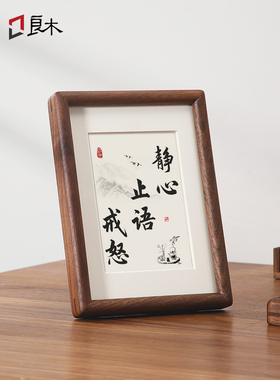 良木
静心
止语
戒怒